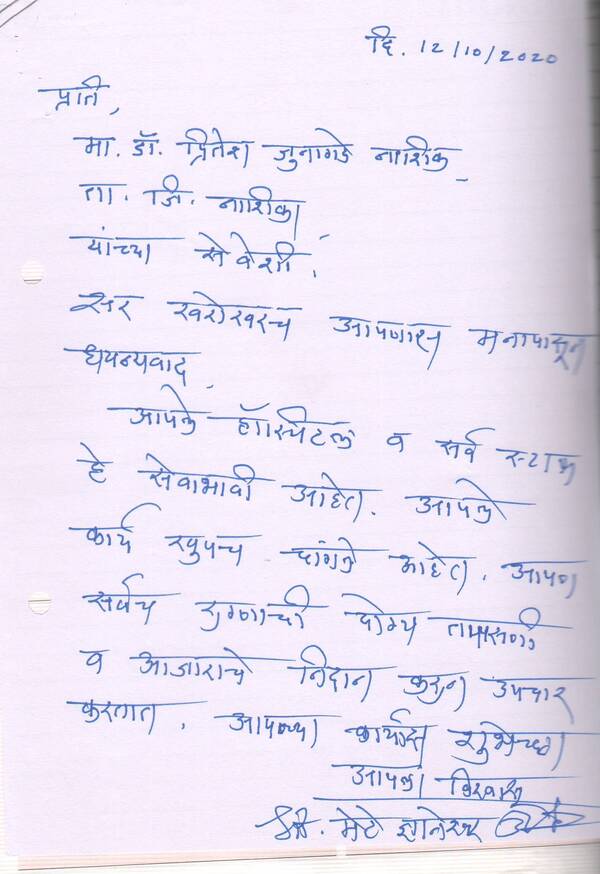 दि. 12/10/2020
प्रति,
मा. डॉ. प्रितेश जुनागडे नाशिक
ता. जि. नाशिक
यांच्या सेवेशी,
सर खरोखरच आपणास मनापासून
धन्यवाद
आपले हॉस्पिटल व सर्व स्टाफ
हे सेवाभावी आहेत. आपले
कार्य खुपच चांगले आहेत. आपण
सर्वच रुग्णाची योग्य तपासणी
व आजाराचे निदान करून उपचार
करतात. आपल्या कार्यास शुभेच्छा
आपला विश्वासू
श्री. मेटे ज्ञानेश्वर